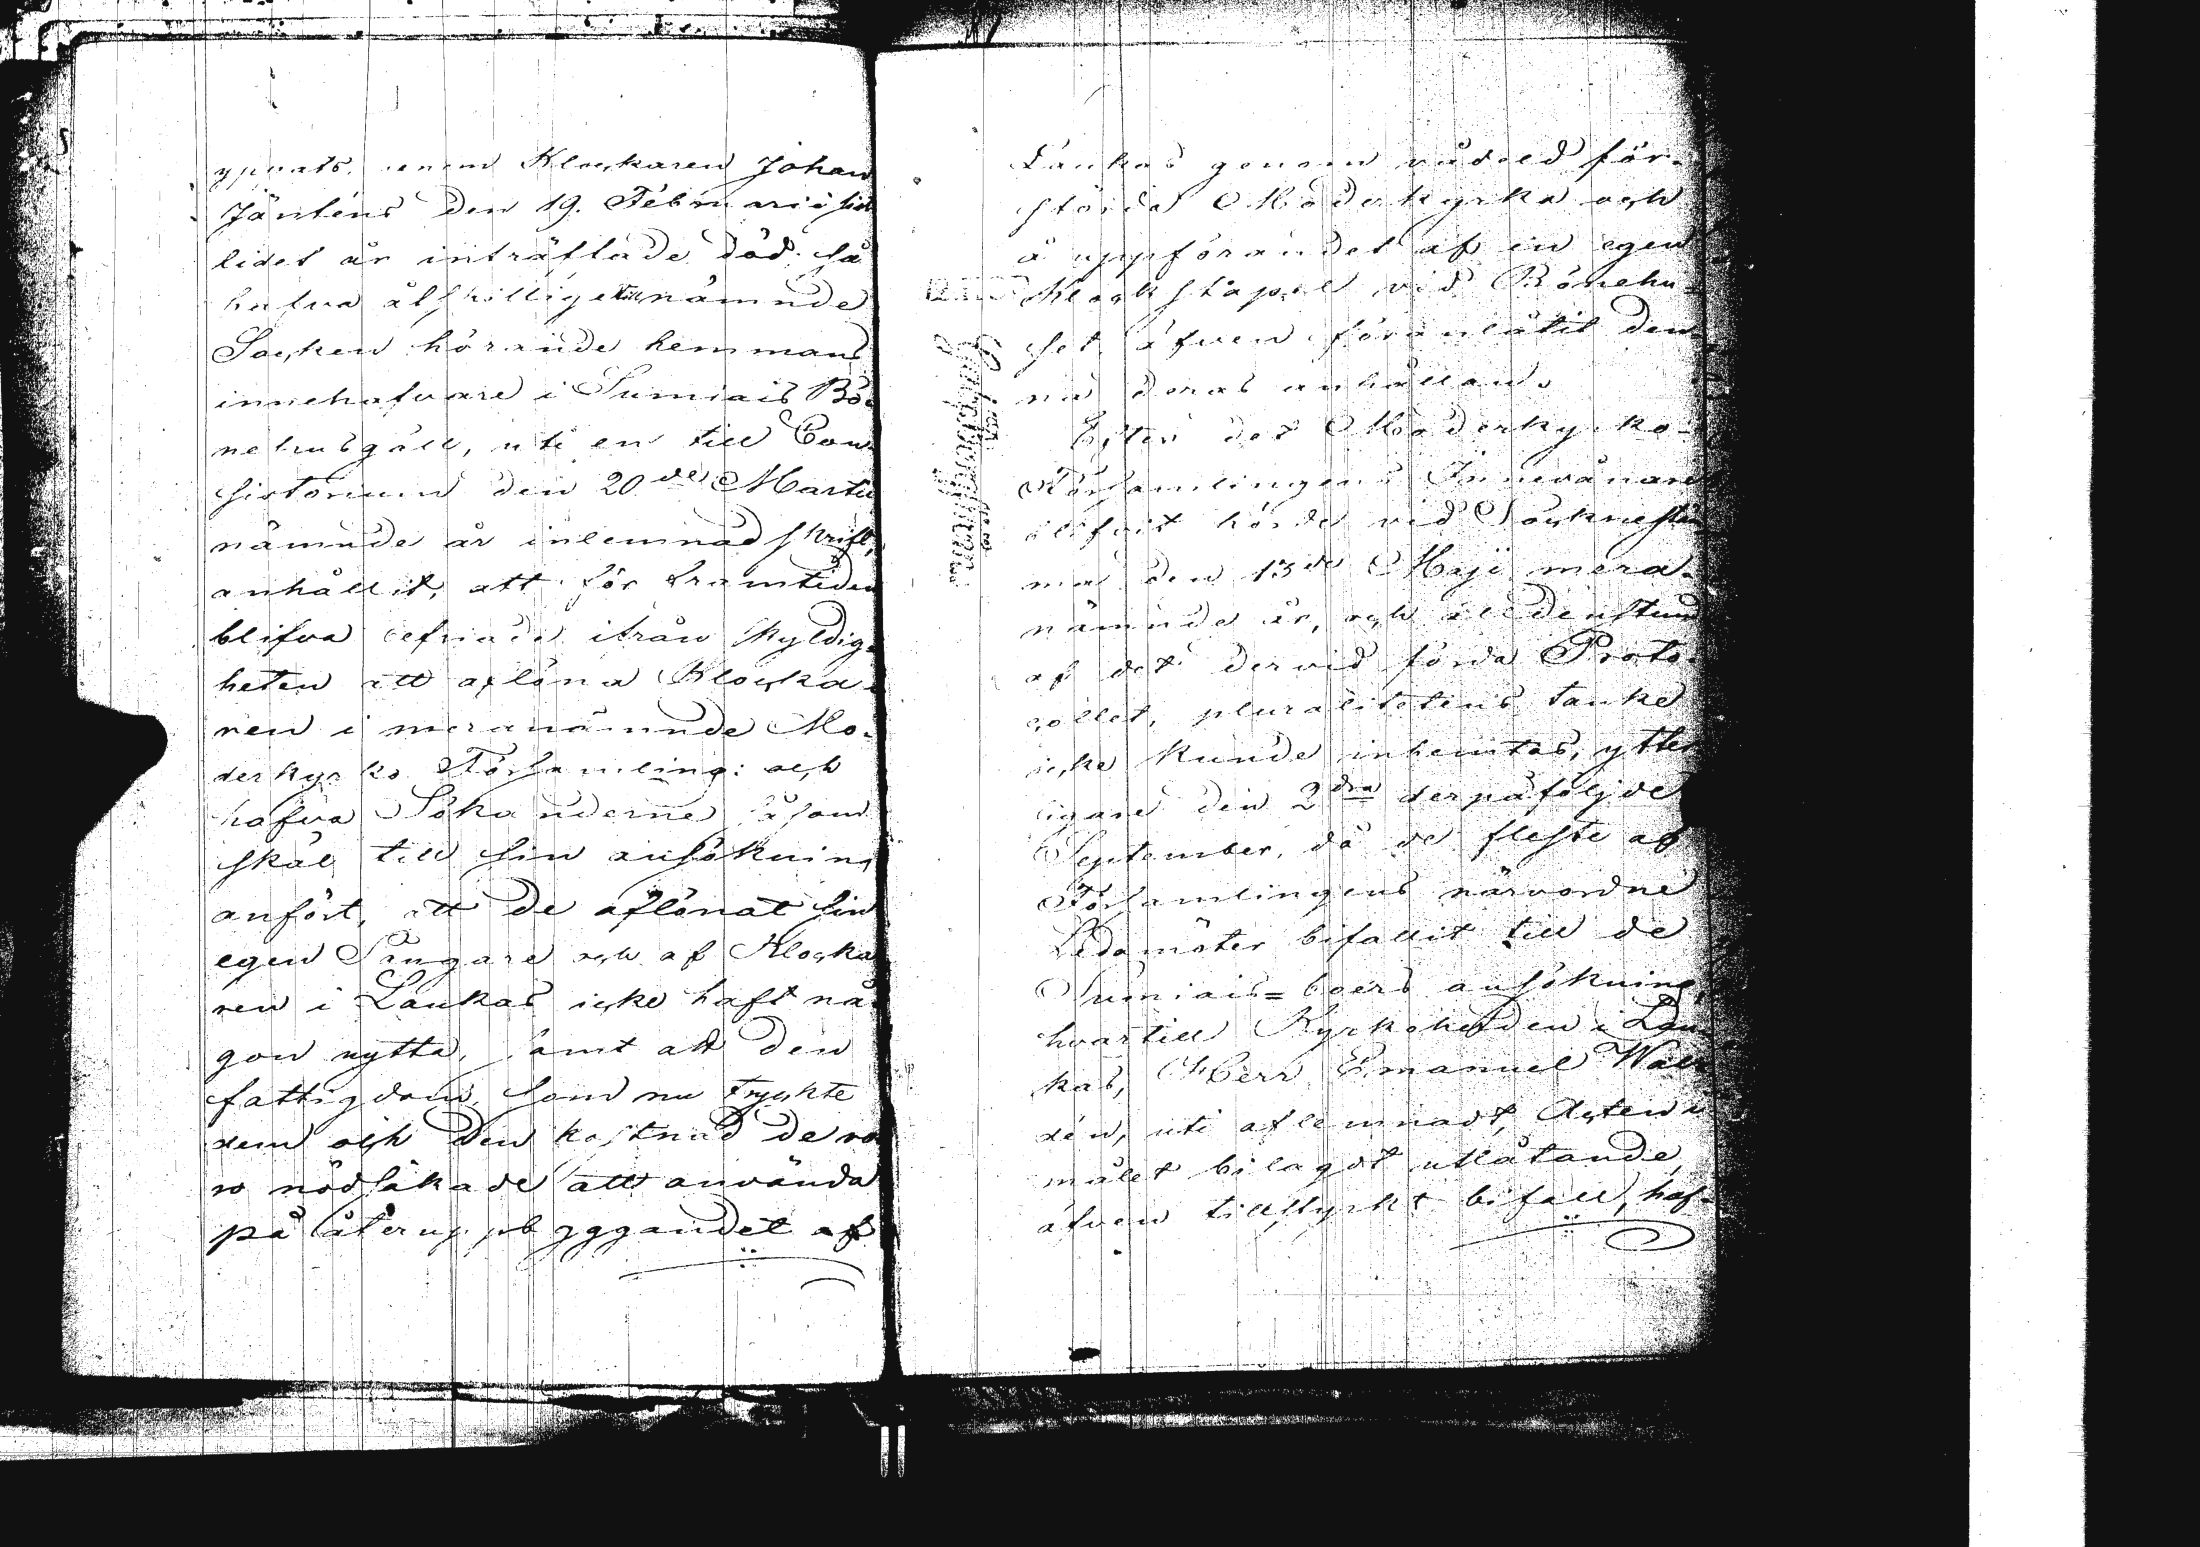 yppnats genom Klockaren Johan
Jänténs den 19. Februarii sist
lidet år inträffade död; så
hafva åtskillige till nämnde
Socken hörande hemmans
innehafvare i Sumiais Bö-
nehusgäll, uti en till Con-
sistorium den 20de Martii
nämnde år inlemnad skrift,
anhållit, att för framtiden
blifva befriade ifrån skyldig-
heten att aflöna Klocka-
ren i meranämnde Mo-
derkyrko Församling: och
hafva Sökanderne såsom
skäl till sin ansökning
anfört, att de aflönat sin
egen Sångare och af Klocka
ren i Laukas icke haft nå-
gon nytta, samt att den
fattigdom, som nu tryckte
dem och den kostnad de vo
ro nödsakade att använda
på återuppbyggandet af
Laukas genom vådeld för-
störda Moderkyrka och
å uppförandet af en egen
Klockstapel vid Bönehu-
set äfven föranlåtit den-
na deras anhållan.
Efter det Moderkyrko-
Församlingens Innevånare
blifvit hörde vid Sockneståm
ma den 13de Maji mera-
nämnde år, och alldenstund
af det dervid förda Proto-
collet, pluralitetens tanke
icke kunde inhemtas, ytter
ligare den 2dra derpåföljde
September, då de fleste af
Församlingens närvordne
Ledamöter bifallit till de
Sumiais=boers ansökning,
hvartill Kyrkoherden i Lau-
kas, Herr Emanuel Wall
dén, uti aflemnadt, Acten i
målet bilagdt utlåtande,
äfven tillstyrkt bifall, haf-